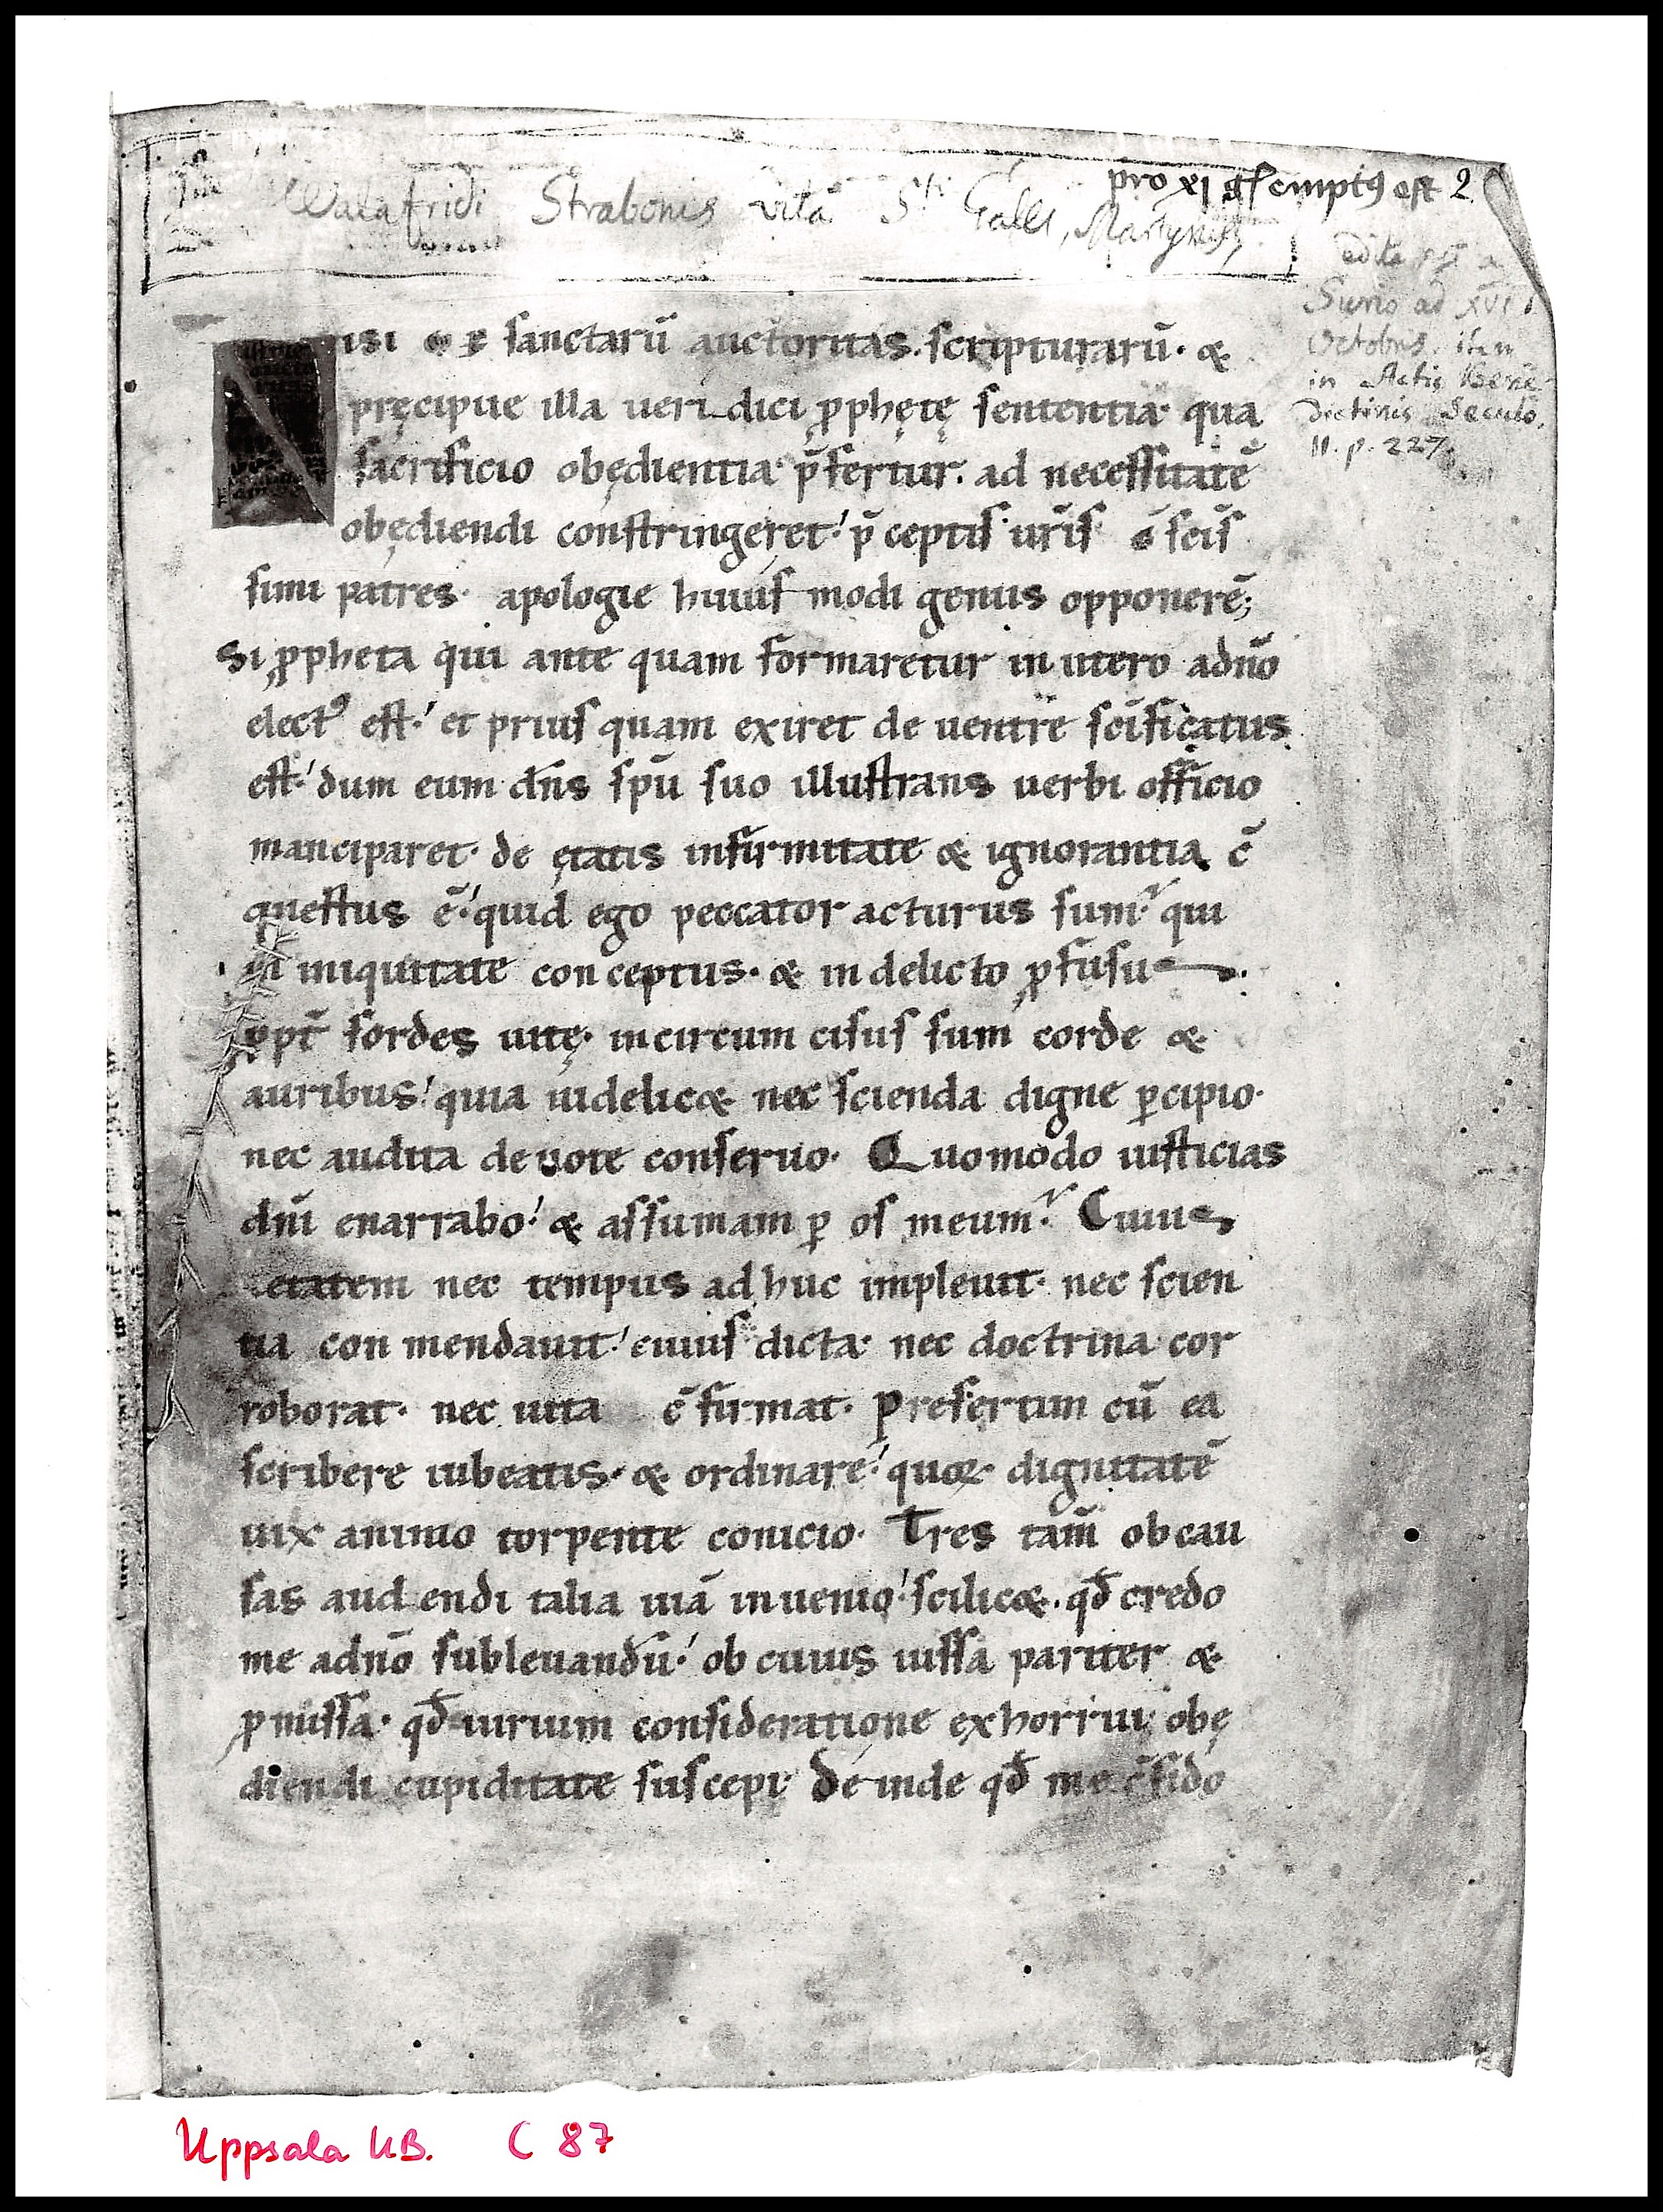 Walafridi Strabonis vita Sti Galli, Martyris,
pro xj gſ emptꝰ eſt 2
edita est a
Surio ad XVI
Octobris. item
in Actis Bene-
dictinis Seculo.
II. p. 227.
NISI ſanctarū auctoritas. ſcripturarū· &
pręcipue illa ueri dici ꝓphętę ſententia· qua
ſacrificio obędientia· p̄fertur· ad neceſſitatē
obędiendi conſtringeret· p̄ ceptiſ ur̄iſ ſc̄iſ
ſimi patres· apologie huiuſ modi genus opponerē;
Si ꝓpheta qui ante quam formaretur in utero adn̄o
electꝰ eſt· et priuſ quam exiret de uentre ſc̄ificatus
eſt· dum eum dn̄s ſpū ſuo illuſtrans uerbi officio
manciparet· de ętatis infirmitate & ignorantia c̄
queſtus ē· quid ego peccator acturus ſum· qui
in iniquitate con ceptus· & in delicto ꝓfuſu
ꝓpt̄ ſordes uitę· incircum ciſuſ ſum corde &
auribus· quia uidelic& nec ſcienda digne ꝑcipio·
nec audita deuote conſeruo· Quomodo iuſticias
dn̄i enarrabo· & aſſumam ꝑ oſ meum· Cuius
etatem nec tempus ad huc impleuit· nec ſcien
tia con mendauit· cuiuſ dicta· nec doctrina cor
roborat· nec uita c̄firmat· Preſertim cū ea
ſcribere iubeatis· & ordinare· quoꝝ dignitatē
uix animo torpente conicio· Tres tam̄ ob cau
ſas aud endi talia uiā inuenio· ſcilic&· qđ credo
me adn̄o ſubleuandū· ob cuius iuſſa pariter &
ꝓmiſſa· qđ uirium conſideratione exhorrui obę
diendi cupiditate ſuſcepi· de inde qđ me c̄fido
Uppsala UB. C 87